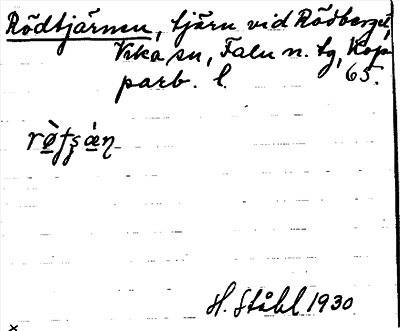 Rödtjärnen, tjärn vid Rödberget,
Vika sn, Falu n. tg, Kop-
parb. l. 65.
H. Ståhl 1930
x